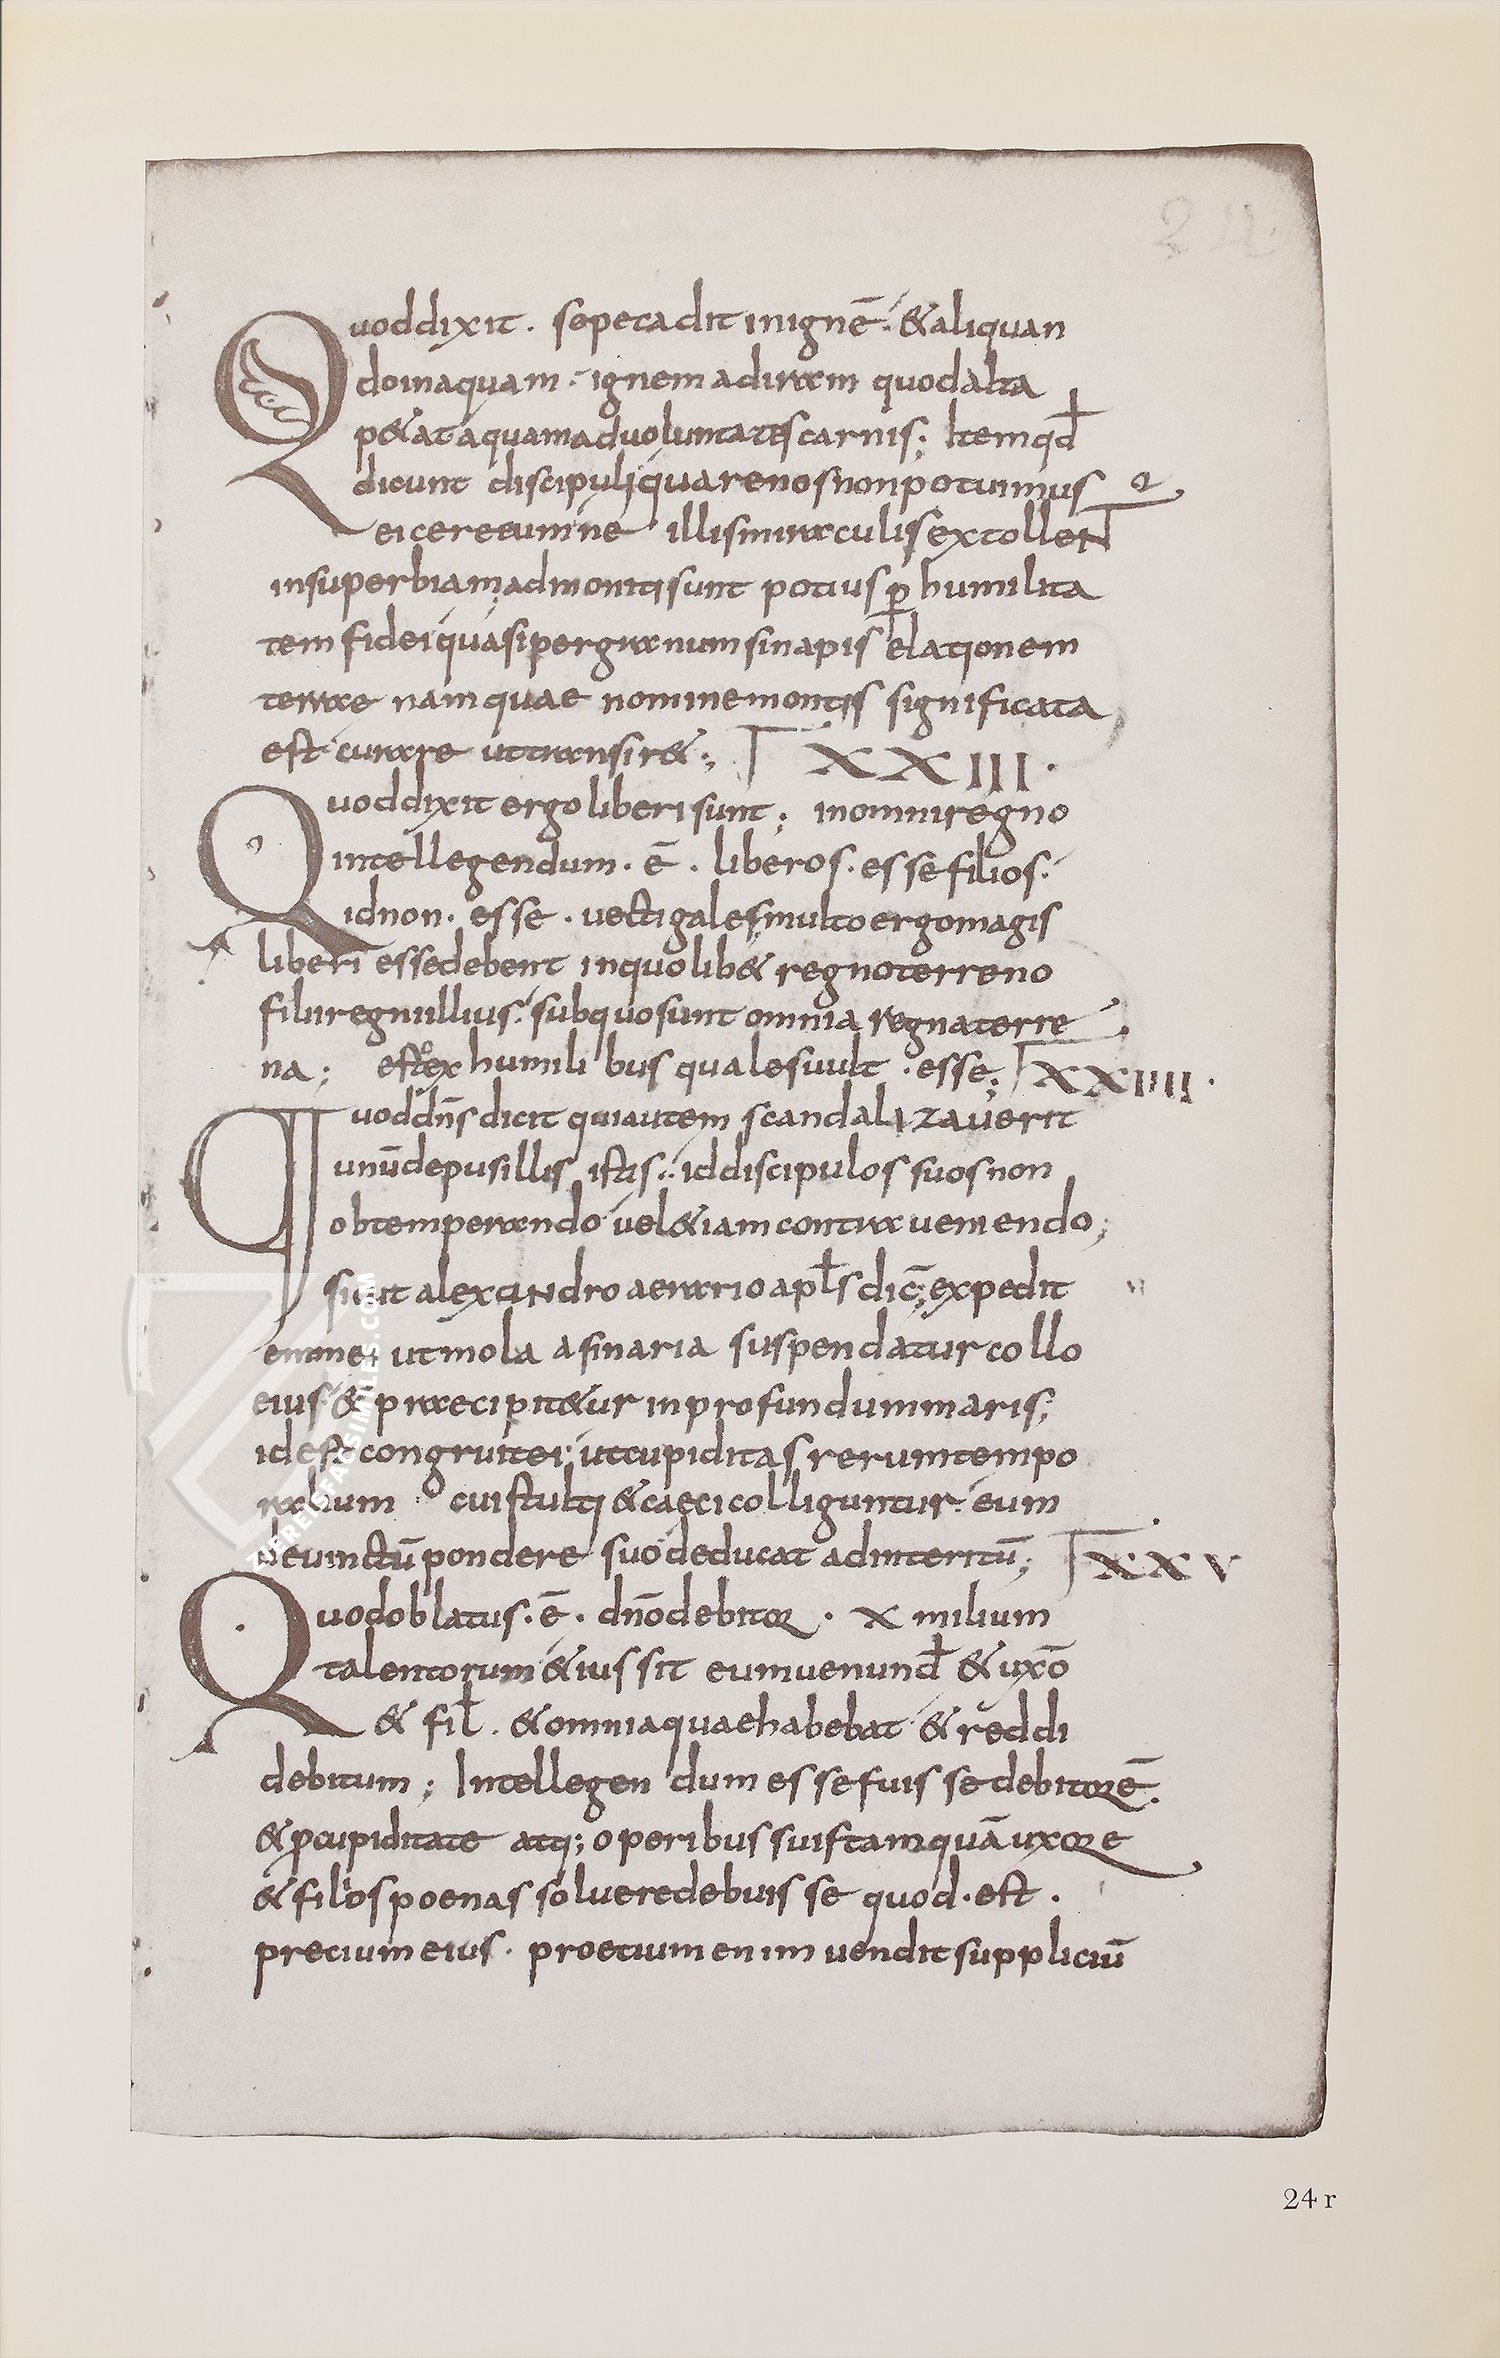 24
Quoddixit. sepecadit inignē. &aliquan
doinaquam. ignem adiram quodalta
p&at aquamaduoluntates carnis; Item qđ
dicunt discipuli quarenosnonpotuimus
eicereeum ne illis miraculis extolleNT
insuperbiam; admoniti sunt potius ꝑ humilita
tem fidei quasi pergranum sinapis elationem
terrae nam quae nomine montis significata
est curare uttransir&; XXIII.
Quoddixit ergo liberi sunt; inomni regno
intellegendum. ē. liberos. esse filios.
idnon. esse. uectigales multo ergo magis
liberi esse debent inquolib& regno terreno
filii regni illius. sub quo sunt omnia regna terre
na; est ex humilibus quales uult. esse; XXIIII.
Quod dn̄s dicit qui autem scandalizauerit
unū de pusillis istis. id discipulos suos non
obtemperando uel &iam contra ueniendo;
sicut alexaNdro aerario apl̄s dic̄; expedit
enim ei ut mola asinaria suspendatur collo
eius & praecipit&ur in profundum maris;
id est congruit ei; ut cupiditas rerum tempo
ralium cui stulti & caeci colliguntur. eum
deuinctū pondere suo deducat ad interitū; XXV
Quod oblatus. ē. dn̄o debitor. X milium
talentorum & iussit eum uenund̄ & uxō
& fil̄. & omnia quae habebat & reddi
debitum; Intellegendum esse fuisse debitorē.
& ꝓcupiditate atq; operibus suis tam quā uxore
& filios poenas soluere debuisse quod. est.
precium eius. proetium enim uendit suppliciū
24 r
ZIEREISFACSIMILES.COM